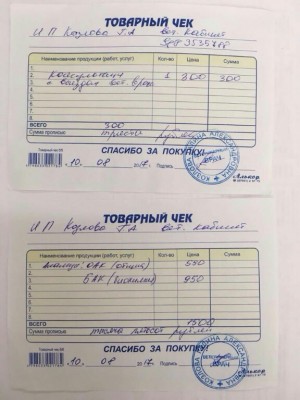 ТОВАРНЫЙ ЧЕК
ИП Козлова Г.А вет. кабинет
Наименование продукции (работ, услуг) Кол-во Цена Сумма
1.
2. Консультация 1 300 300
3. вет. врача
4.
5.
6.
ВСЕГО 300
Сумма прописью триста рублей
СПАСИБО ЗА ПОКУПКУ!
10. 08 2017 Подпись
ТОВАРНЫЙ ЧЕК
ИП Козлова Г.А вет. кабинет
Наименование продукции (работ, услуг) Кол-во Цена Сумма
1. Анализ: ОАК (общий) 550
2. БАК (биохимия) 950
3.
4.
5.
6.
ВСЕГО 1500
Сумма прописью тысяча пятьсот рублей
СПАСИБО ЗА ПОКУПКУ!
10. 08 2017 Подпись